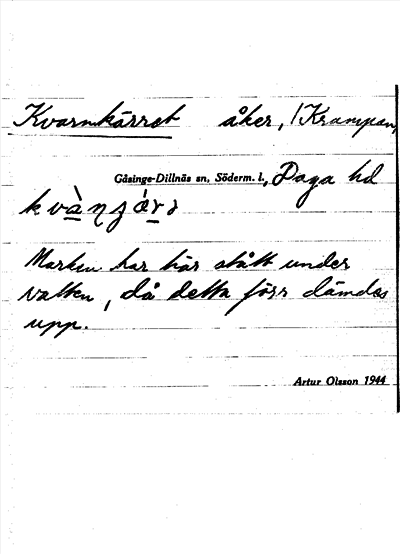 Kvarnkärret åker, /Krampan,
Gåsinge-Dillnäs sn, Söderm. l., Daga hd
Marken har här stått under
vatten, då detta förr dämdes
upp.
Artur Olsson 1944